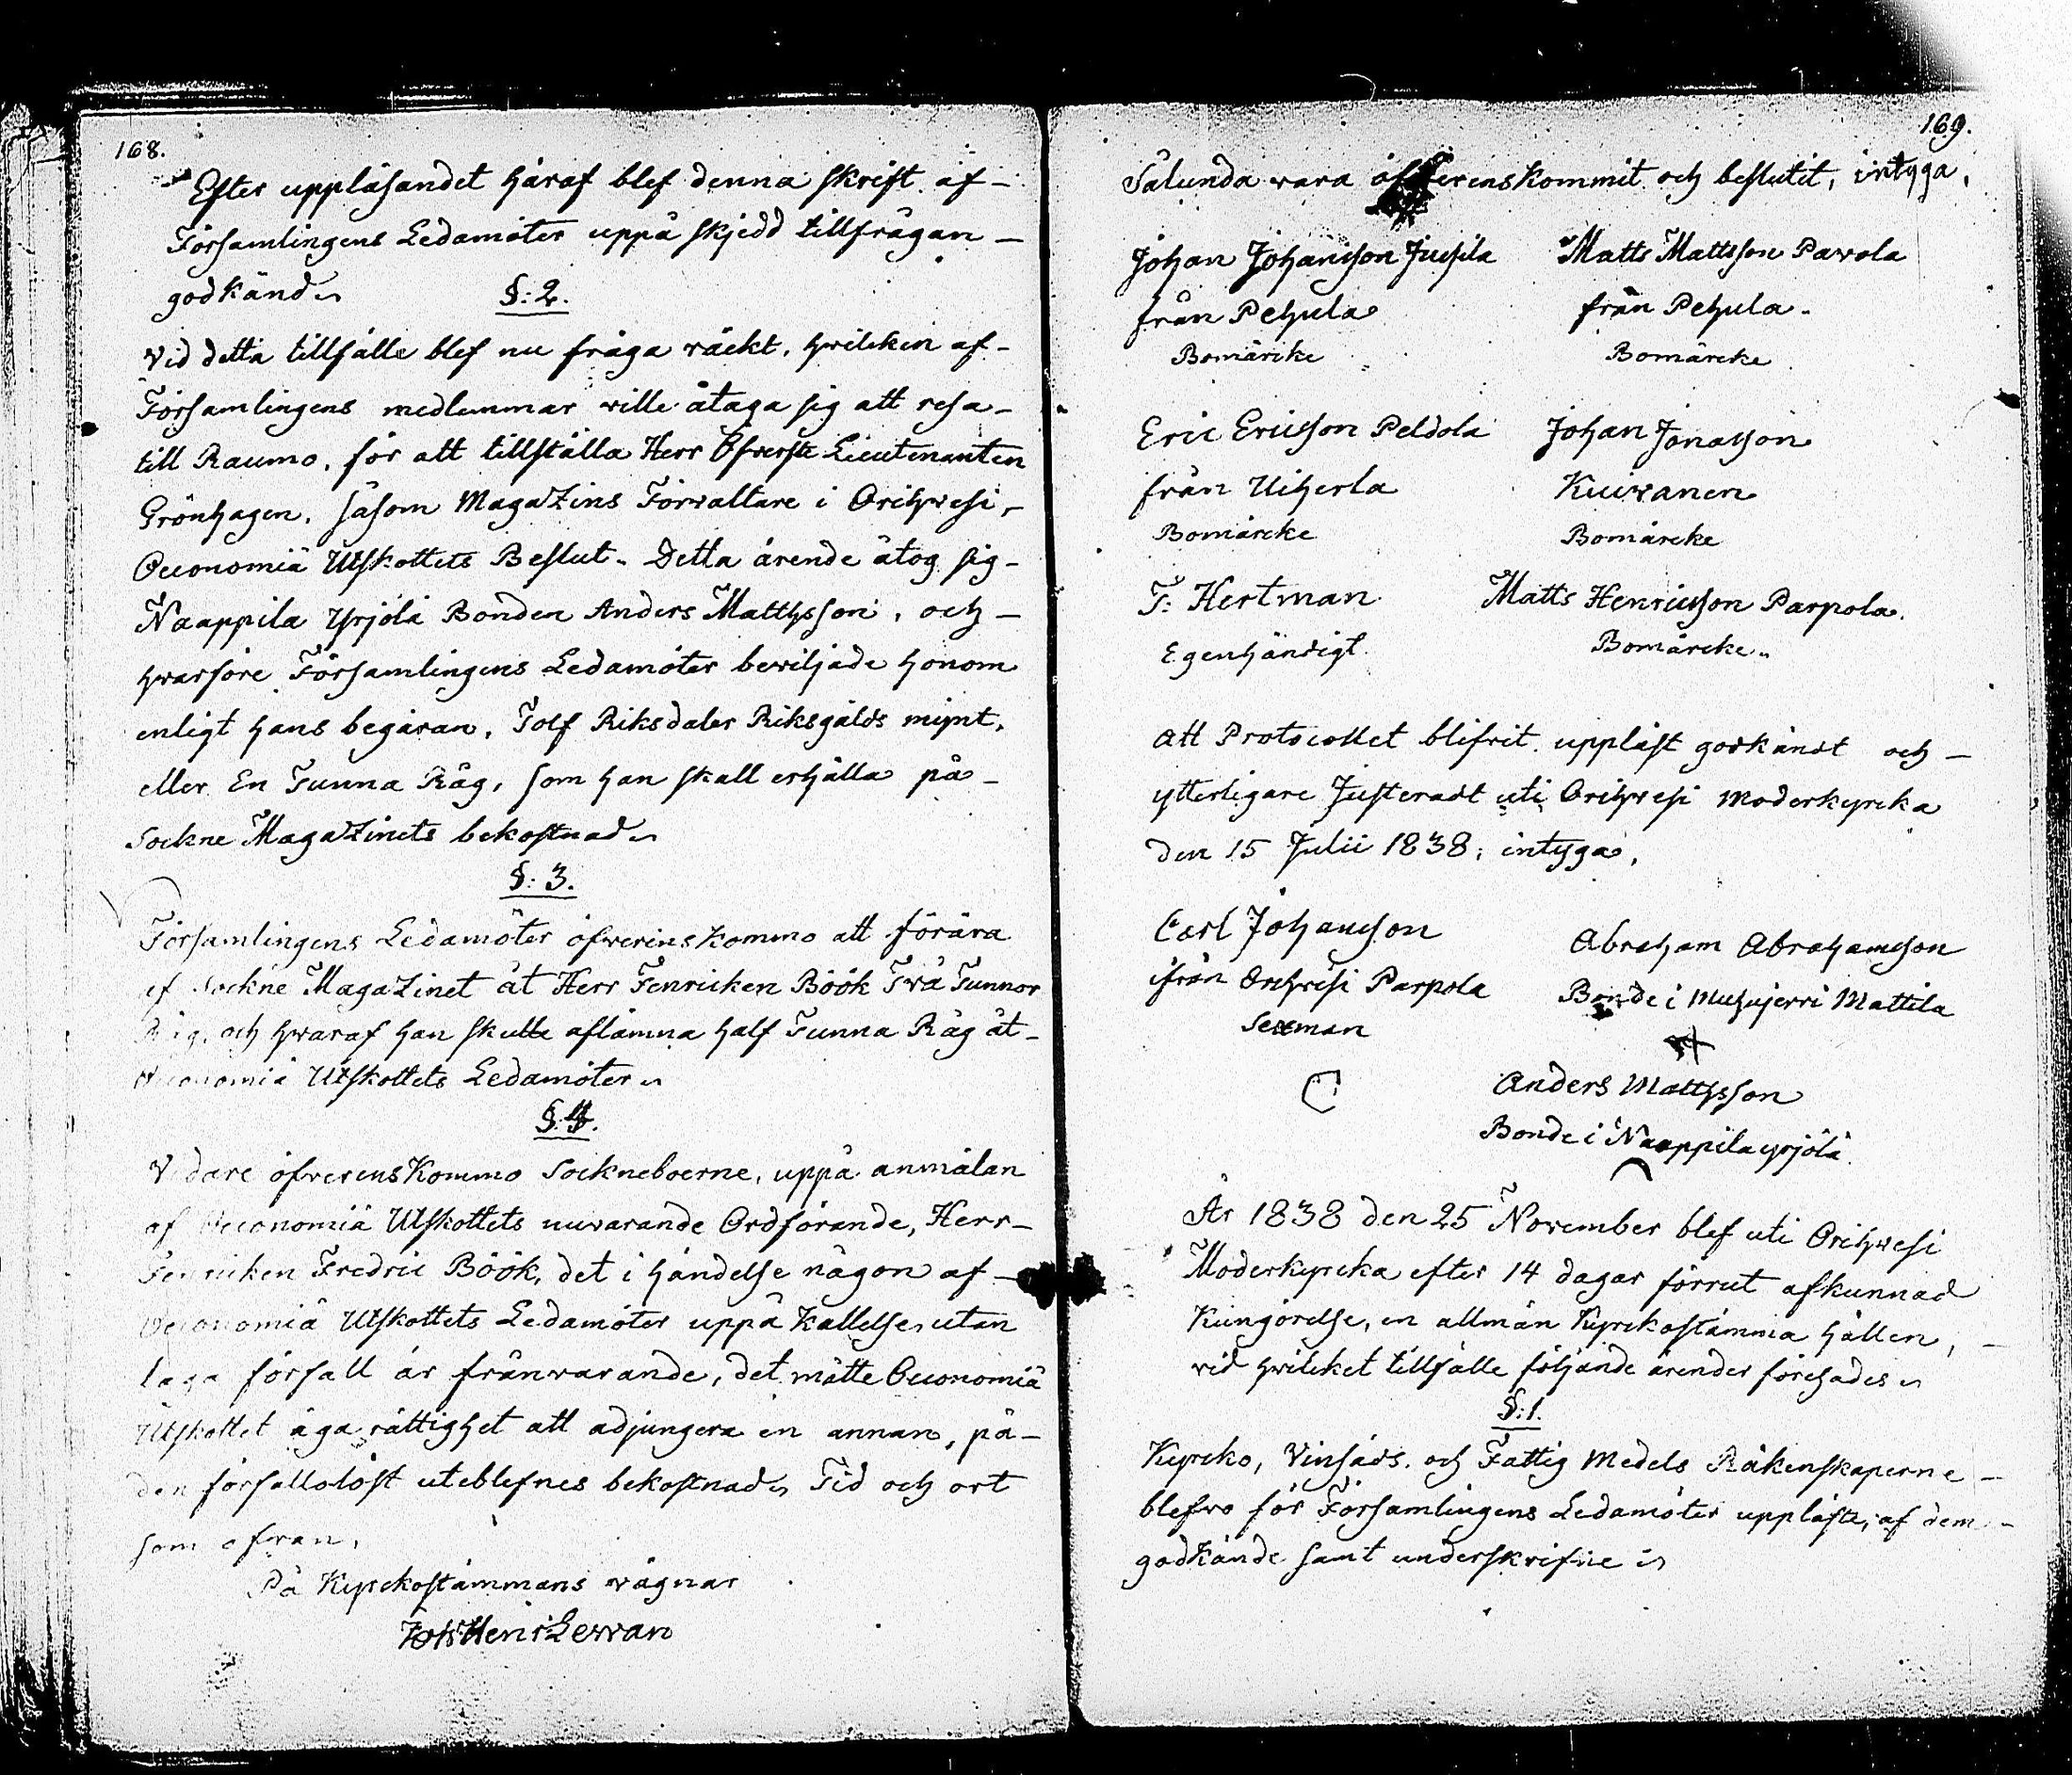 168.
Efter uppläsandet häraf blef denna skrift af-
Församlingens Ledamöter uppå skjedd tillfrågan -
godkänd.
§: 2.
Vid detta tillfälle blef nu fråga väckt, hvilcken af-
Församlingens medlemmar ville åtaga sig att resa-
till Raumo, för att tillställa Herr Öfverste Lieutenanten
Grönhagen, såsom Magazins Förvaltare i Orihvesi,-
Oeconomiä Utskottets Beslut. Detta ärende åtog sig-
Naappila Yrjölä Bonden Anders Matthsson, och -
hvarföre Församlingens Ledamöter beviljade honom
enligt hans begäran, Tolf Riksdaler Riksgälds mynt,
eller En Tunna Råg, som han skall erhålla på-
Sockne Magazinets bekostnad.
§: 3.
Församlingens Ledamöter öfverenskommo att förära
af Sockne Magazinet åt Herr Fenricken Böök Två Tunnor
Råg, och hvaraf han skulle aflämna half Tunna Råg åt-
Oeconomiä Utskottets Ledamöter.
§: 4.
Vidare öfverenskommo Sockneboerne, uppå anmälan
af Oeconomiä Utskottets nuvarande Ordförande, Herr-
Fenricken Fredric Böök, det i händelse någon af-
Oeconomiä Utskottets Ledamöter uppå Kallelse, utan
laga förfall är frånvarande, det måtte Oeconomiä
Utskottet äga rättighet att adjungera en annan, på-
den förfallolöst uteblefnes bekostnad. Tid och ort
som ofvan,
På Kyrckostämmans vägnar
Joh: Henr: Levvan
169.
Sålunda vara öfverenskommit och beslutit, intyga,
Johan Johansson Jussila Matts Mattsson Pavola
från Pehula från Pehula.
Bomärcke Bomärcke
Eric Ericsson Peldola Johan Jonasson
från Uiherla Kuivanen
Bomärcke Bomärcke
F: Hertman Matts Henricsson Parpola.
Egenhändigt. Bomärcke.
Att Protocollet blifvit uppläst godkändt och -
ytterligare Justeradt uti Orihvesi Moderkyrcka
den 15 Julii 1838; intyga,
Carl Johansson Abraham Abrahamsson
ifrån Orihvesi Parpola Bonde i Muhujerri Mattila
Sexman
Anders Matthsson
Bonde i Naappila yrjölä.
År 1838 den 25 November blef uti Orihvesi
Moderkyrcka efter 14 dagar förrut afkunnad
Kungörelse, en allmän Kyrckostämma hållen,
vid hvilcket tillfälle följande ärender förehades.
§: 1.
Kyrcko, Vinsäds. och Fattig Medels Räkenskaperne -
blefvo för Församlingens Ledamöter uppläste, af dem -
godkände samt underskrifne